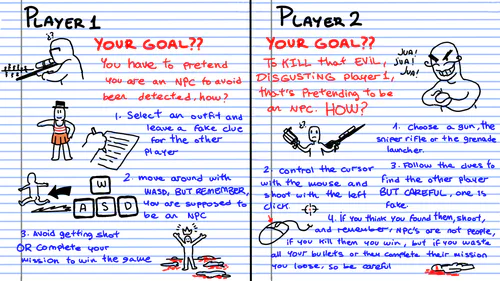 PLAYER 1
YOUR GOAL??
You have to Pretend
you are an NPC to avoid
been detected, how?
1. Select an outfit and
leave a fake clue
for the other
player
2. move around with
WASD, BUT REMEMBER,
you are supposed to
be an NPC
W
A S D
3. Avoid getting shot
OR complete your
mission to win the game
PLAYER 2
YOUR GOAL??
To KILL that EVIL,
DISGUSTING player 1,
that's PRETENDING to be
an NPC. HOW?
JUA!
JUA!
JUA!
1. Choose a gun, the
sniper rifle or the grenade
launcher.
2. Control the cursor
with the mouse and
shoot with the left
click
3. Follow the clues to
find the other player
BUT CAREFUL, one is
fake.
4. If you think you found them, shoot,
and remember, NPC's are not people,
if you kill them you win, but if you waste
all your bullets or then complete their mission
you loose, so be careful